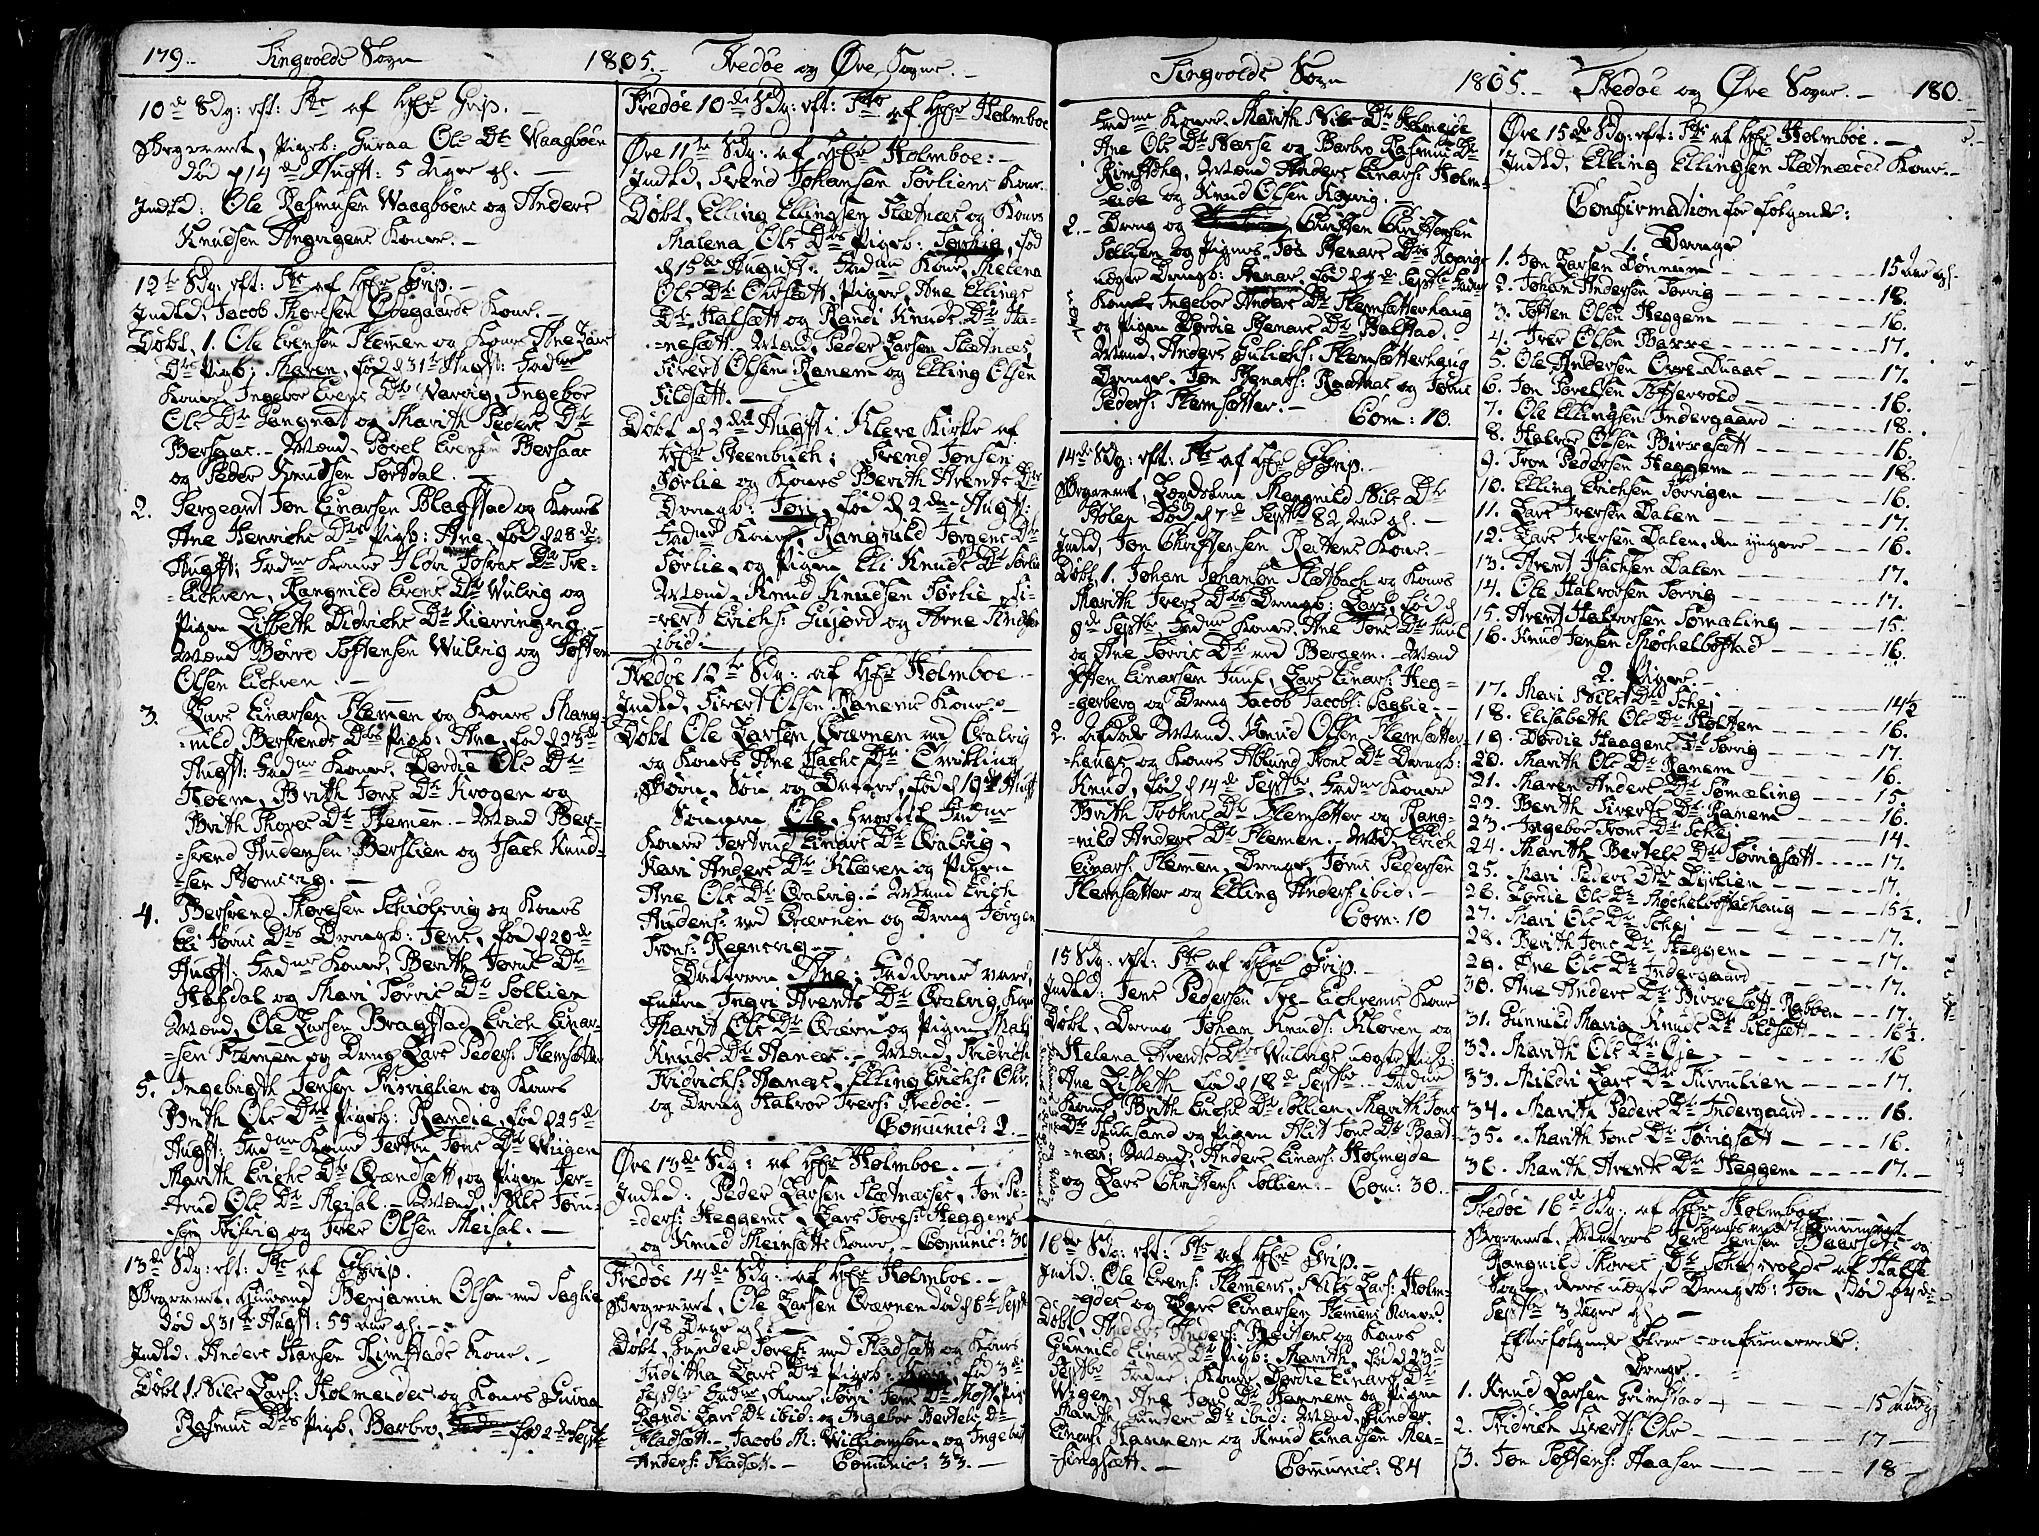 179. Tingvolds Sogn 1805. Tredøe og Øre Sogne.
10de Sdg: eft: Tris af Hr Grip.
Begravet, Pigeb: Guraa Ols Dr Waagbøen
død d 14de Augst: 5 Uger gl.
Indld: Ole Rasmusen Waagbøens og Anders
Knudsen Angvigens Koner.
12te Sdg: eft: Tris af Hr Grip.
Indld, Jacob Thorsen Ødegaards Kone.
Døbt, 1. Ole Evensen Flemen og Kones Ane Lars
Drs Pigeb: Maren, fød d 31te Augst: Fadne
Koner Ingebor Evens Dr Wærvig, Ingebor
Ols Dr Langnæt og Marith Peders Dr
Bersaas. Mænd, Torel Evensen Bersaas
og Peder Knudsen Sørdal.
2. Sergeant Jon Einarsen Blagstad og Kones
Ane Henrichs Drs Pigeb: Ane, fød d 28de
Augst: Fadne Koner
Eichren, Rangnild Evens Dr Wulvig og
Pigen Lisbeth Didrichs Dr Kierringvig
Mænd Børre Toftensen Wulvig og Toften
Olsen Eichren
3. Lars Einarsen Flemen og Kones Mang-
=nild Bersvends Drs Pigeb: Ane, fød d 23de
Augst: Fadne Koner, Dordie Ols Dr
Hoem, Brith Jons Dr Krogen og
Brith Thores Dr Flemen. Mænd Ber-
=svend Andersen Berslien og Isach Knud-
=sen Hoemsvig.
4. Bersvend Thoresen Schiølsvig og Kones
Eli Jens Drs Drengb: Jens, fød d 20de
Augst: Fadne Koner, Berith Jons Dr
Hafsdal og Mari Torris Dr Sollien
Mænd, Ole Larsen Bragstad, Erich Einar-
=sen Flemen og Dreng Lars Peders: Flemsætter
5. Ingebrigth Jensen Trisviglien og Kones
Brith Ols Drs Pigeb: Randie, fød d 25de
Augst: Fadne Koner Jertru Jons Dr Wiigen
Marith Erichs Dr Brændsætt, og Pigen Jer-
=trud Ols Dr Meisal. Mænd, Nils Jon-
=sen Trisvig og Iver Olsen Meisal.
13de Sdg: eft: Tris af Grip.
Begravet, Huusmand Benjamin Olsen ved Saglie
død d 31te Augst: 55 aar gl:
Indld: Anders Hansen Rimstads Kone.
Døbt 1. Nils Lars: Holmeides og Kones Guraa
Rasmus Drs Pigeb, Barbro, fød 2den Septr
Tredøe 10de Sdg: eft: Tris af Hr Holmboe
Øre 11te Sdg: af Hr Holmboe:
Indld, Svend Johansen Sørliens Kone.
Døbt, Elling Ellingsen Slætnæs og Kones
Malena Ols Drs Pigeb: fød
d 15de August. Fadne Koner, Malena
Ols Dr Ohrsætt, Piger, Ane Ellings
Dr Halsætt og Randi Knuds Dr Ha-
=nesætt. Mænd, Peder Larsen Slætnæs,
Sivert Olsen Ranem og Elling Olsen
Sildsætt.
Døbt d 2den Augst i Kløve Kirke af
Hr Steenbuch; Svend Jonsen
Sørlie og Kones Berith Arents Drs
Drengb: Jon, fød d 2den Augst:
Fadne Koner, Rangnild Jørgens Dr
Sørlie, og Pigen Eli Knuds Dr Sørlie
Mænd, Knud Knudsen Sørlie, Si-
=vert Erichs: Gujord og Arne Knudsen
ibid.
Tredøe 12te Sdg: af Hr Holmboe
Indld, Sivert Olsen Ranems Kone.
Døbt Ole Larsen Qværnen ved Qvalvig
og Kones Ane Isachs Dr Tvilling
Børn, Søn og Datter, fød d 19de Augst
Sønnen Ole, hvortil Fadne
Koner Jertrud Einars Dr Qvalvig,
Kari Anders Dr Kløven og Pigen
Ane Ols Dr Qvalvig. Mænd Erich
Andens: ved Qværnen og Dreng Jørgen
Trons: Røensvig.
Datteren Ane; Faddere vare,
Enken Ingri Arents Dr Qvalvig, Kone
Marit Ols Dr Qværn og Pigen Mali
Knuds Dr Hanæs. Mænd, Fridrich
Fridrichs: Hanæs, Elling Erichs: Ohr,
og Dreng Halvor Ivers: Tredøe.
Comunic: 2.
Øre 13de Sdg: af Hr Holmboe.
Indld: Peder Larsen Slætnæses, Jon Pe-
=ders: Heggems, Lars Tores: Heggems
og Knud Meinsætts Koner. Comunic: 30
Tredøe 14de Sdg: af Hr Holmboe.
Begravet, Ole Larsen Qværnen død d 6te Septr
18 Dage gl.
Døbt, Gunder Tores: ved Fladsætt og Kones
Juditha Lars Drs Pigeb: fød 3de
Septbr Fadne, Kone, Pige
Randi Lars Dr ibid: og Ingebor Bertels Dr
Fladsætt. Jacob M: Williamsen, og Ingebrit
Anders: Fladsætt. Comunic: 33.
Tingvolds Sogn 1805. Tredøe og Øre Sogne. 180.
Fadne Koner Marith Nils Dr Holmeide
Ane Ols Dr Næsse og Barbro Rasmus Dr
Rimstshg, Mænd Anders Einars: Holm-
=eide og Knud Olsen Kopvig.
2. Dreng og Christen Christensen
Sollien og Pigens Jon Stenars Drs Kopvigs
uægte Drengb: Stenar, fød d 4de Septr Fadne
Koner Ingebor Anders Dr Flemsætterhaug
og Pigen Dordie Stenars Dr Belstad.
Mænd, Anders Gulichs: Flemsætterhaug
Drenge, Jon Stenars: Raanæs og Jens
Peders: Flemsætter. Com: 10.
14de Sdg: eft: Tris af Hr Grip.
Begravet, Lægdslem Mangnild Nils Dr
Holen død d 7de Septbr 82 aar gl.
Indld, Jon Christensen Reitens Kone.
Døbt, 1. Johan Johansen Slætbach og Kones
Marith Ivers Drs Drengb: Lars, fød d
9de Septbr Fadne Koner, Ane Jons Dr Juul
og Ane Torris Dr ved Bergem. Mænd
Joften Einarsen Juul, Lars Einars: Heg-
=gerberg og Dreng Jacob Jacobs: Saglie.
2. Afdøde Mand, Knud Olsen Flemsætter-
=haugs og Kones Aslaund Trons Drs Drengb:
Knud, fød d 14de Septbr. Fadne Koner
Brith Trons Dr Flemsætter og Rang-
=nild Anders Dr Flemen. Mænd, Erich
Einars: Flemen, Drenge, Jens Pedersen
Flemsætter og Elling Anders: ibid.
Com: 10
15 Sdg: eft: Tris af Hr Grip.
Indld: Jens Pedersen Tre-Eichrens Kone
Døbt, Dreng Johan Knuds: Kløven og
Helena Arents Drs Wulvigs uægte Pigeb:
Ane Lisbeth fød d 18de Septbr. Fadne
Koner Brith Erichs Dr Sollien, Marith Jons
Dr Juulsand og Pigen Alit Jons Dr Baat-
=næs; Mænd, Anders Einars: Holmeyde
og Lars Christens: Sollien. Com: 30.
16de Sdg: eft: Tris af Hr Grip.
Indld: Ole Evens: Flemens, Nils Lars: Holm-
=eydes og Lars Einarsen Flemens Koner.
Døbt, Anders Anders: Reitens og Kones
Gunnild Einars Drs Pigeb: Marith, fød d 23de
Septbr Fadne: Koner Dordie Einars Dr
Wigen, Ane Jons Dr Hannem og Pigen
Marith Gunders Dr ibid: Mænd, Gunder
Einars: Hannem og Knud Einarsen Mei-
=singsætt. Comunic: 84
Øre 15de Sdg: eft: Tris af Hr Holmboe.
Indld, Elling Ellingsen Slætnæses Kone.
Confirmation for følgende:
1. Drenge
1. Jon Larsen Lønnum 15 Aar gl.
2. Johan Andersen Torvig 18.
3. Joften Olsen Heggem 16.
4. Iver Olsen Barre 17.
5. Ole Andersen Øvre-Aaas 17.
6. Jon Torelsen Toftervold 16.
7. Ole Ellingsen Indergaard 18.
8. Halvor Olsen Birresætt 16.
9. Tron Pedersen Heggem 18.
10. Elling Erichsen Torvigen 16.
11. Lars Iversen Dalen 17.
12. Lars Iversen Dalen, den yngere 16.
13. Arent Isachsen Dalen 17.
14. Ole Halvorsen Torvig 17.
15. Arent Halvorsen Sømæling 15.
16. Knud Jensen Møchelbostad 16.
2. Piger.
17. Mari Nils Dr Schei 14½
18. Elisabeth Ols Dr Holten 16.
19. Dordie Haagens Dr Torvig 17.
20. Marith Ols Dr Ranem 16.
21. Maren Anders Dr Sømæling 15
22. Berith Siverts Dr Ranem 16.
23. Ingebor Trons Dr Schei 14.
24. Marith Bertels Dr Torvigsætt 17.
25. Mari Peders Dr Lyrlien 17.
26. Lordie Ols Dr Møchelbostadhaug 15½.
27. Mari Ols Dr Schei 17.
28. Berith Jons Dr Heggem 17.
29. Ane Ols Dr Indergaard 17.
30. Ane Anders Dr Birresætt-Rabben 17.
31. Gunnild Maria Knuds Dr Sildsætt 16½.
32. Marith Ols Dr Øie 16
33. Mildri Lars Dr Furulien 17.
34. Marith Peders Dr Indergaard 16.
35. Marith Jons Dr Torvigsætt 16.
36. Marith Arents Dr Heggem 17.
Tredøe 16de Sdg: af Hr Holmboe
Rangnild Thores Dr af Halse
Sogn, deres uægte Drengeb: Jon, død d 4de
Septbr 3 Uger gl.
Efterfølgende bleve confirmerede:
Drenge.
1. Knud Larsen Grimstad 15 Aar gl
2. Fridrich Siverts: Ohr 17
3. Jon Toftens: Aasen 18